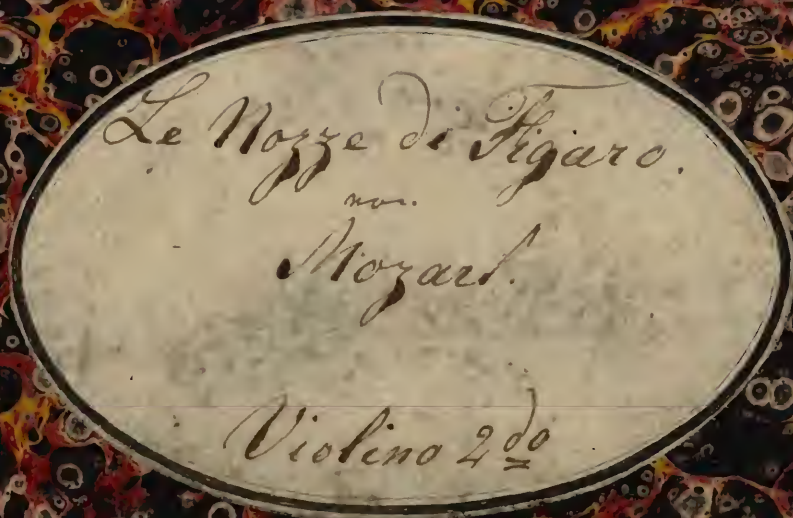 Le Nozze di Figaro.
von
Mozart.
Violino 2do